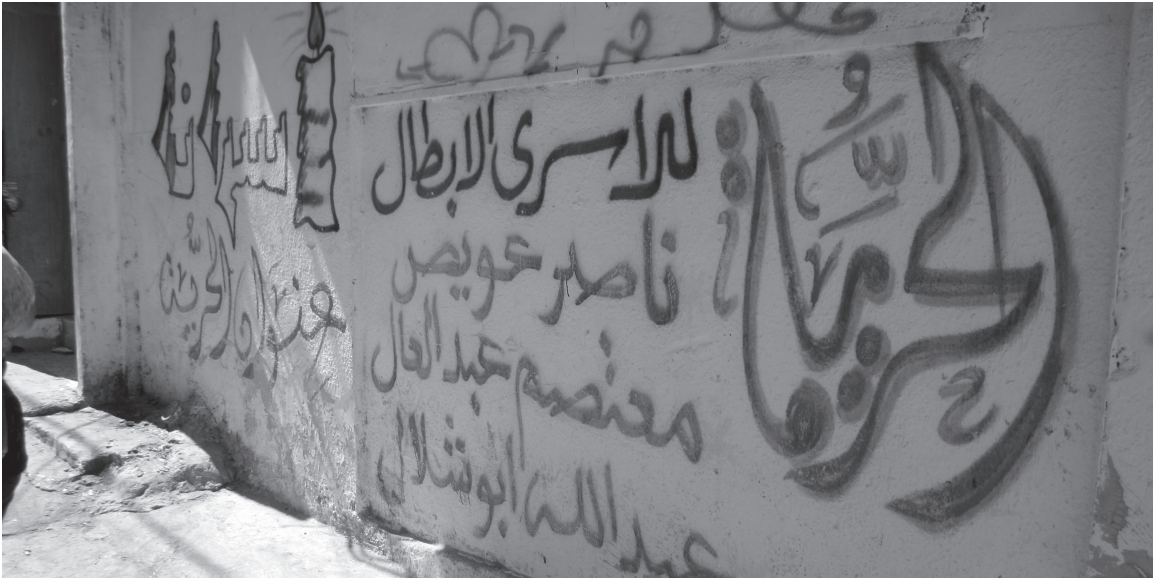 الحريّة
للاسرى الابطال
ناصر عويص
معتصم عبد العال
عبد الله ابو شلال
اسرانا
الحريّة